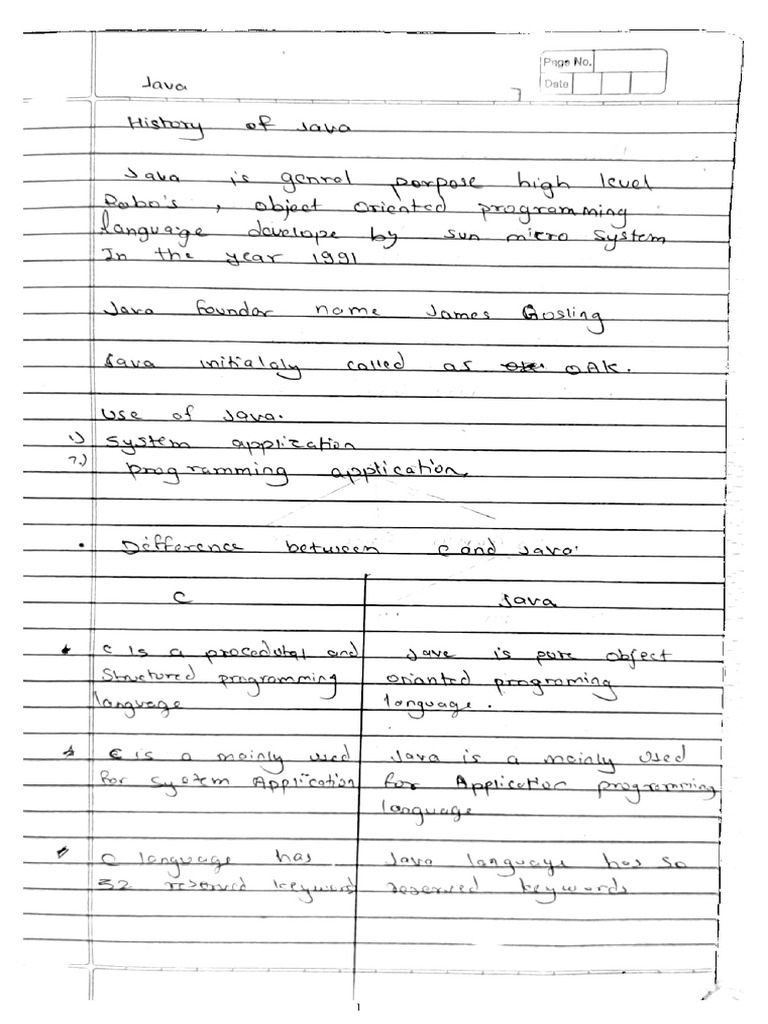 Page No.
Date
Java
History of Java
Java is genral porpose high level
Robo's, object oriented programming
language develope by sun micro system
In the year 1991
Java foundar name James Gosling
Java initialaly called as OAK.
Use of Java.
1.) System application
2.) programming application.
• Difference between C and Java.
C Java
C is a procedutal and Java is pure object
Structured programming orianted programing
language language.
C is a mainly used Java is a mainly used
for System Application for Application programming
language
C language has Java language has 50
32 reserved keyword reserved keywords
1